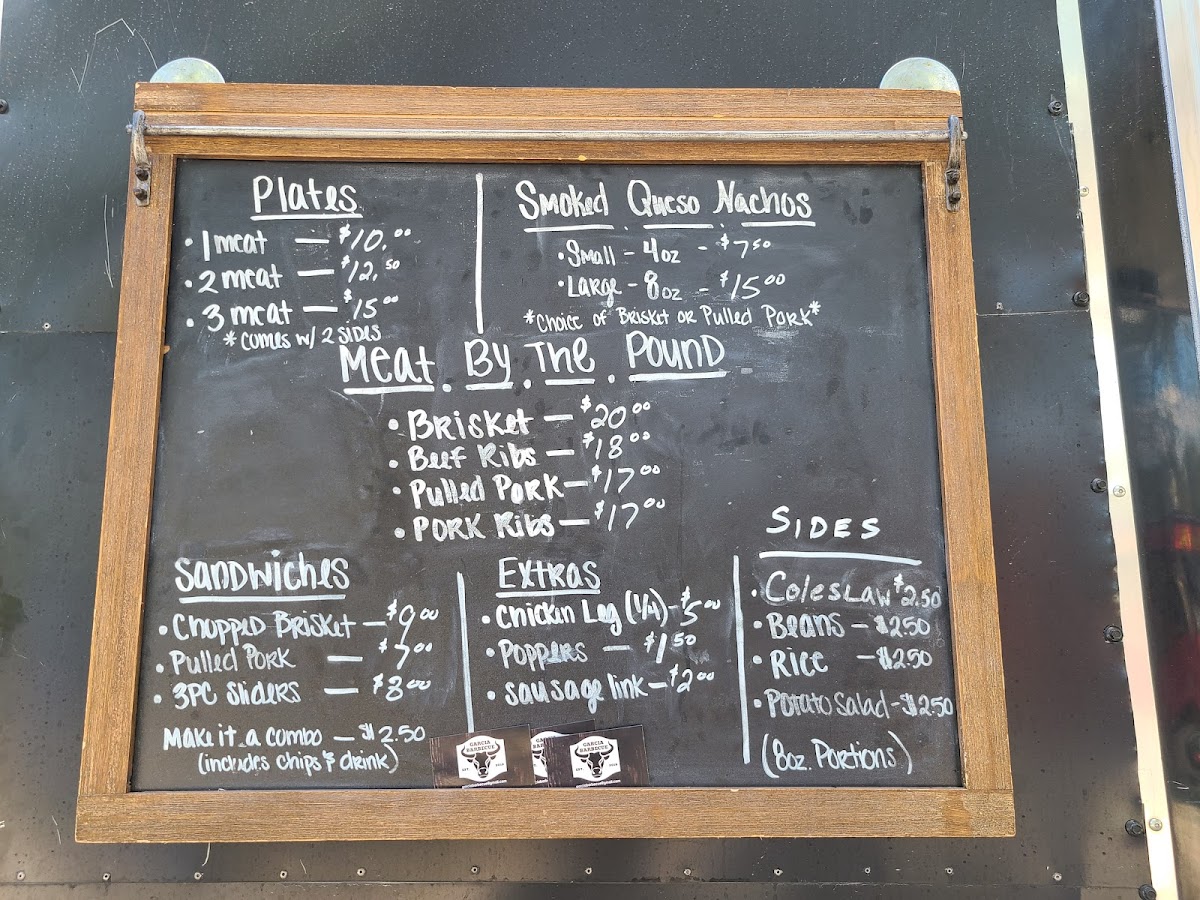 Plates
• 1 meat — $10.00
• 2 meat — $12.50
• 3 meat — $15.00
*comes w/ 2 sides
Smoked Queso Nachos
• Small - 4oz - $7.50
• Large - 8oz - $15.00
*Choice of Brisket or Pulled Pork*
Meat By The Pound
• Brisket — $20.00
• Beef Ribs — $18.00
• Pulled Pork — $17.00
• Pork Ribs — $17.00
Sandwiches
• Chopped Brisket — $9.00
• Pulled Pork — $7.00
• 3PC Sliders — $8.00
Make it a combo — $2.50
(includes chips & drink)
Extras
• Chicken Leg (1/4) - $5.00
• Poppers — $1.50
• Sausage link — $2.00
Sides
• Coleslaw $2.50
• Beans - $2.50
• Rice - $2.50
• Potato Salad - $2.50
(8oz. Portions)
GARCIA
BARBECUE
GARCIA
BARBECUE